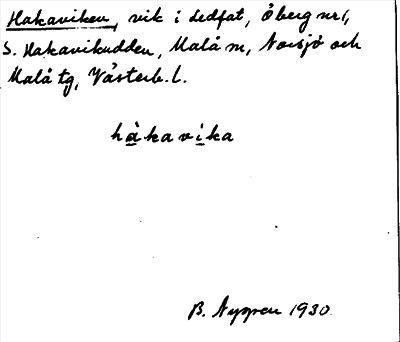 Hakaviken, vik i Ledfat, Åberg nr 1,
S. Hakavikudden, Malå m, Norsjö och
Malå tg, Västerb. l.
hàkavika
B. Nygren 1930